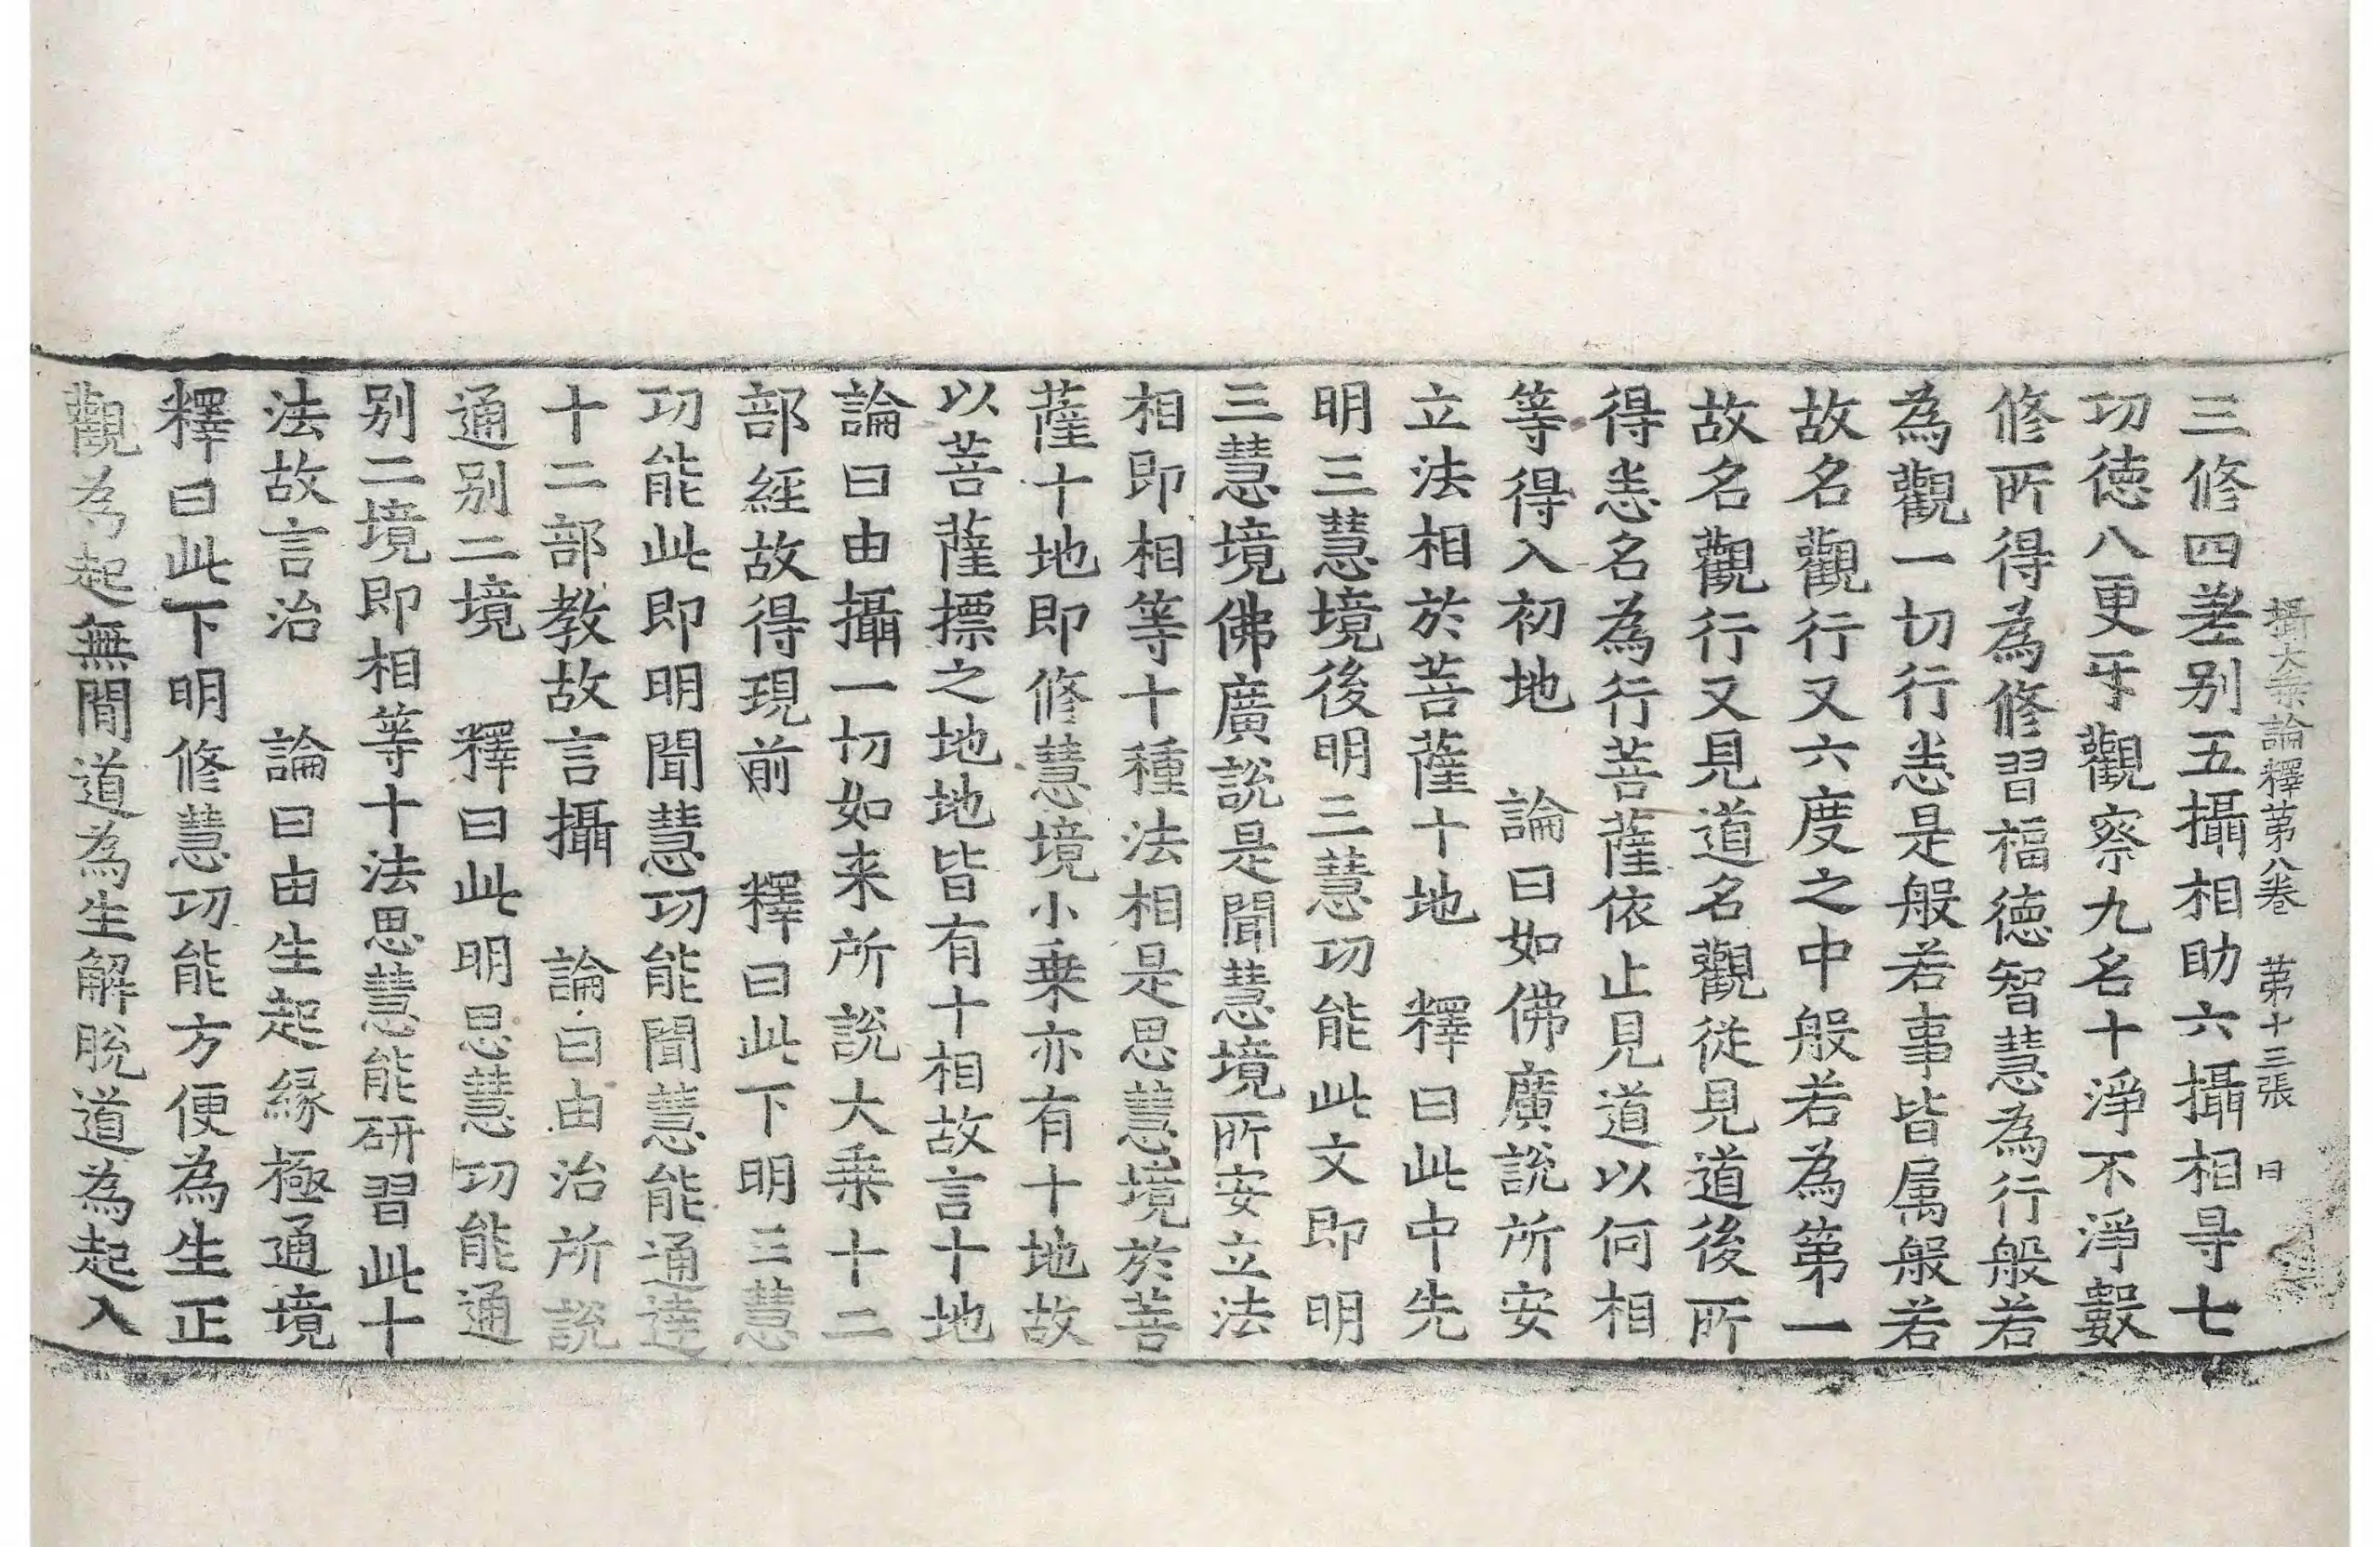 攝大乗論釋第八卷 第十三張 曰
三修四差别五攝相助六攝相㝵七
功徳八更㸦觀察九名十淨不淨數
修所得為修習福徳智慧為行般若
為觀一切行恙是般若事皆属般若
故名觀行又六度之中般若為第一
故名觀行又見道名觀從見道後所
得恙名為行菩薩依止見道以何相
等得入初地 論曰如佛廣說所安
立法相於菩薩十地 釋曰此中先
明三慧境後明三慧功能此文即明
三慧境佛廣說是聞慧境所安立法
相即相等十種法相是思慧境於菩
薩十地即修慧境小乗亦有十地故
以菩薩摽之地地皆有十相故言十地
論曰由攝一切如来所說大乗十二
部經故得現前 釋曰此下明三慧
功能此即明聞慧功能聞慧能通達
十二部教故言攝 論曰由治所說
通别二境 釋曰此明思慧功能通
别二境即相等十法思慧能研習此十
法故言治 論曰由生起縁極通境
釋曰此下明修慧功能方便為生正
觀為起無間道為生解脫道為起入